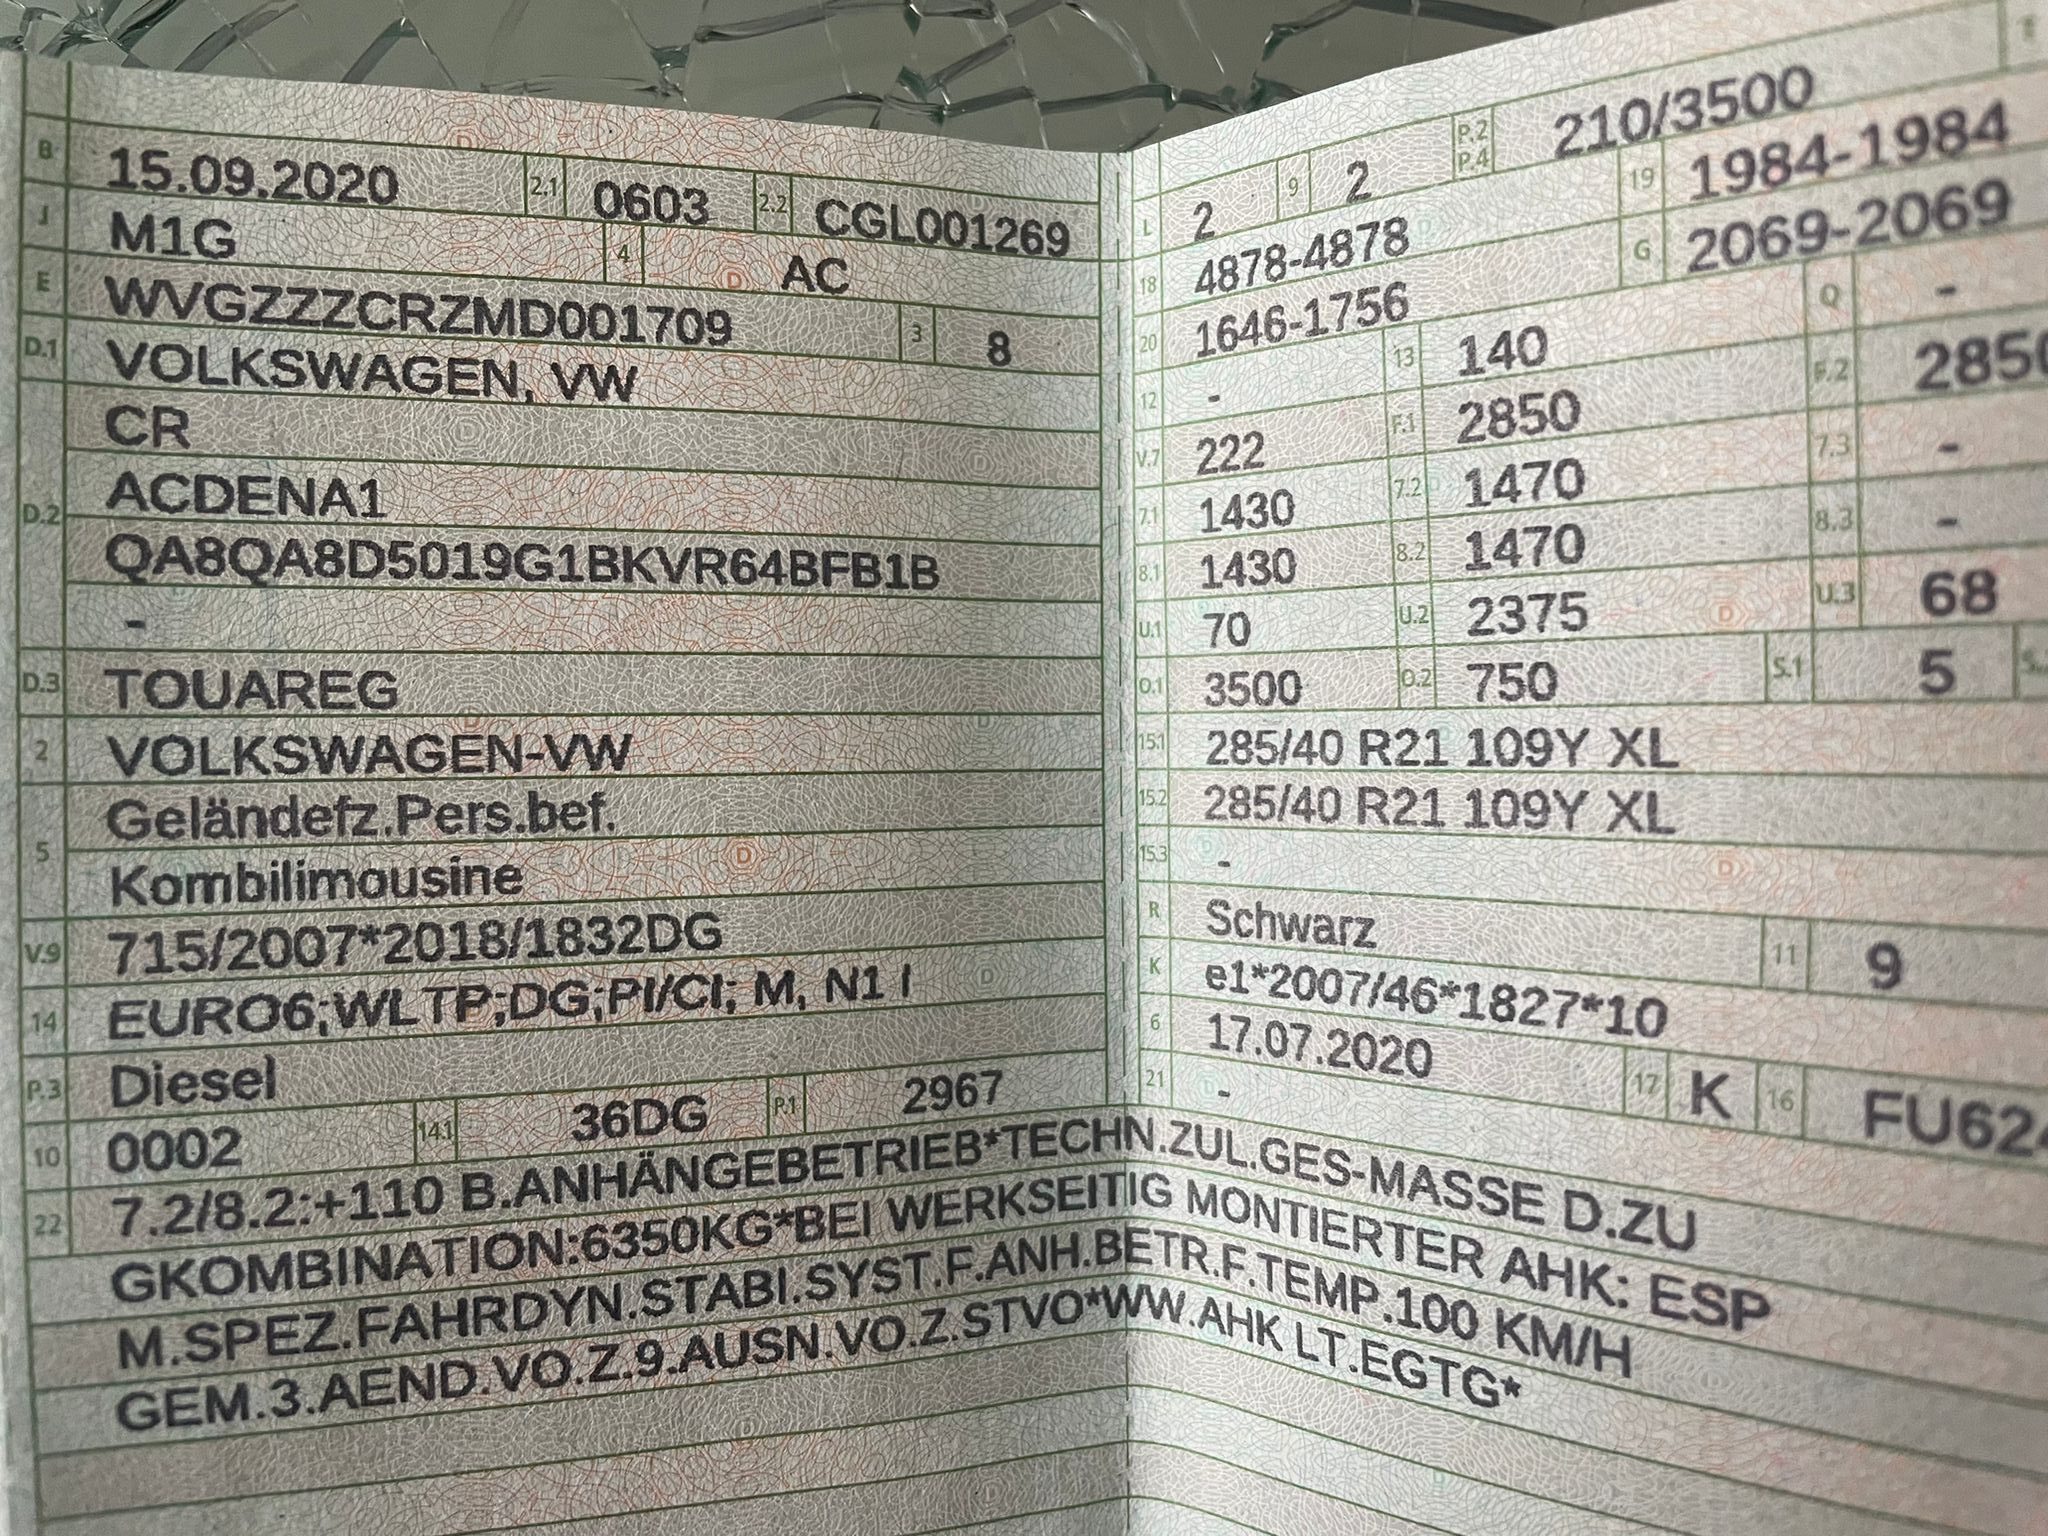 B 15.09.2020 2.1 0603 2.2 CGL001269
J M1G 4 AC
E WVGZZZCRZMD001709 3 8
D.1 VOLKSWAGEN, VW
CR
D.2 ACDENA1
QA8QA8D5019G1BKVR64BFB1B
-
D.3 TOUAREG
2 VOLKSWAGEN-VW
5 Geländefz.Pers.bef.
Kombilimousine
V.9 715/2007*2018/1832DG
14 EURO6;WLTP;DG;PI/CI; M, N1 I
P.3 Diesel
10 0002 14.1 36DG P.1 2967
L 2 9 2 P.2 P.4 210/3500
18 4878-4878 19 1984-1984
20 1646-1756 G 2069-2069
12 - 13 140 Q -
V.7 222 F.1 2850 F.2
7.1 1430 7.2 1470 7.3 -
8.1 1430 8.2 1470 8.3 -
U.1 70 U.2 2375 U.3 68
O.1 3500 O.2 750 S.1 5
15.1 285/40 R21 109Y XL
15.2 285/40 R21 109Y XL
15.3 -
R Schwarz 11 9
K e1*2007/46*1827*10
6 17.07.2020 17 K 16
21 -
22 7.2/8.2:+110 B.ANHÄNGEBETRIEB*TECHN.ZUL.GES-MASSE D.ZU
GKOMBINATION:6350KG*BEI WERKSEITIG MONTIERTER AHK: ESP
M.SPEZ.FAHRDYN.STABI.SYST.F.ANH.BETR.F.TEMP.100 KM/H
GEM.3.AEND.VO.Z.9.AUSN.VO.Z.STVO*WW.AHK LT.EGTG*